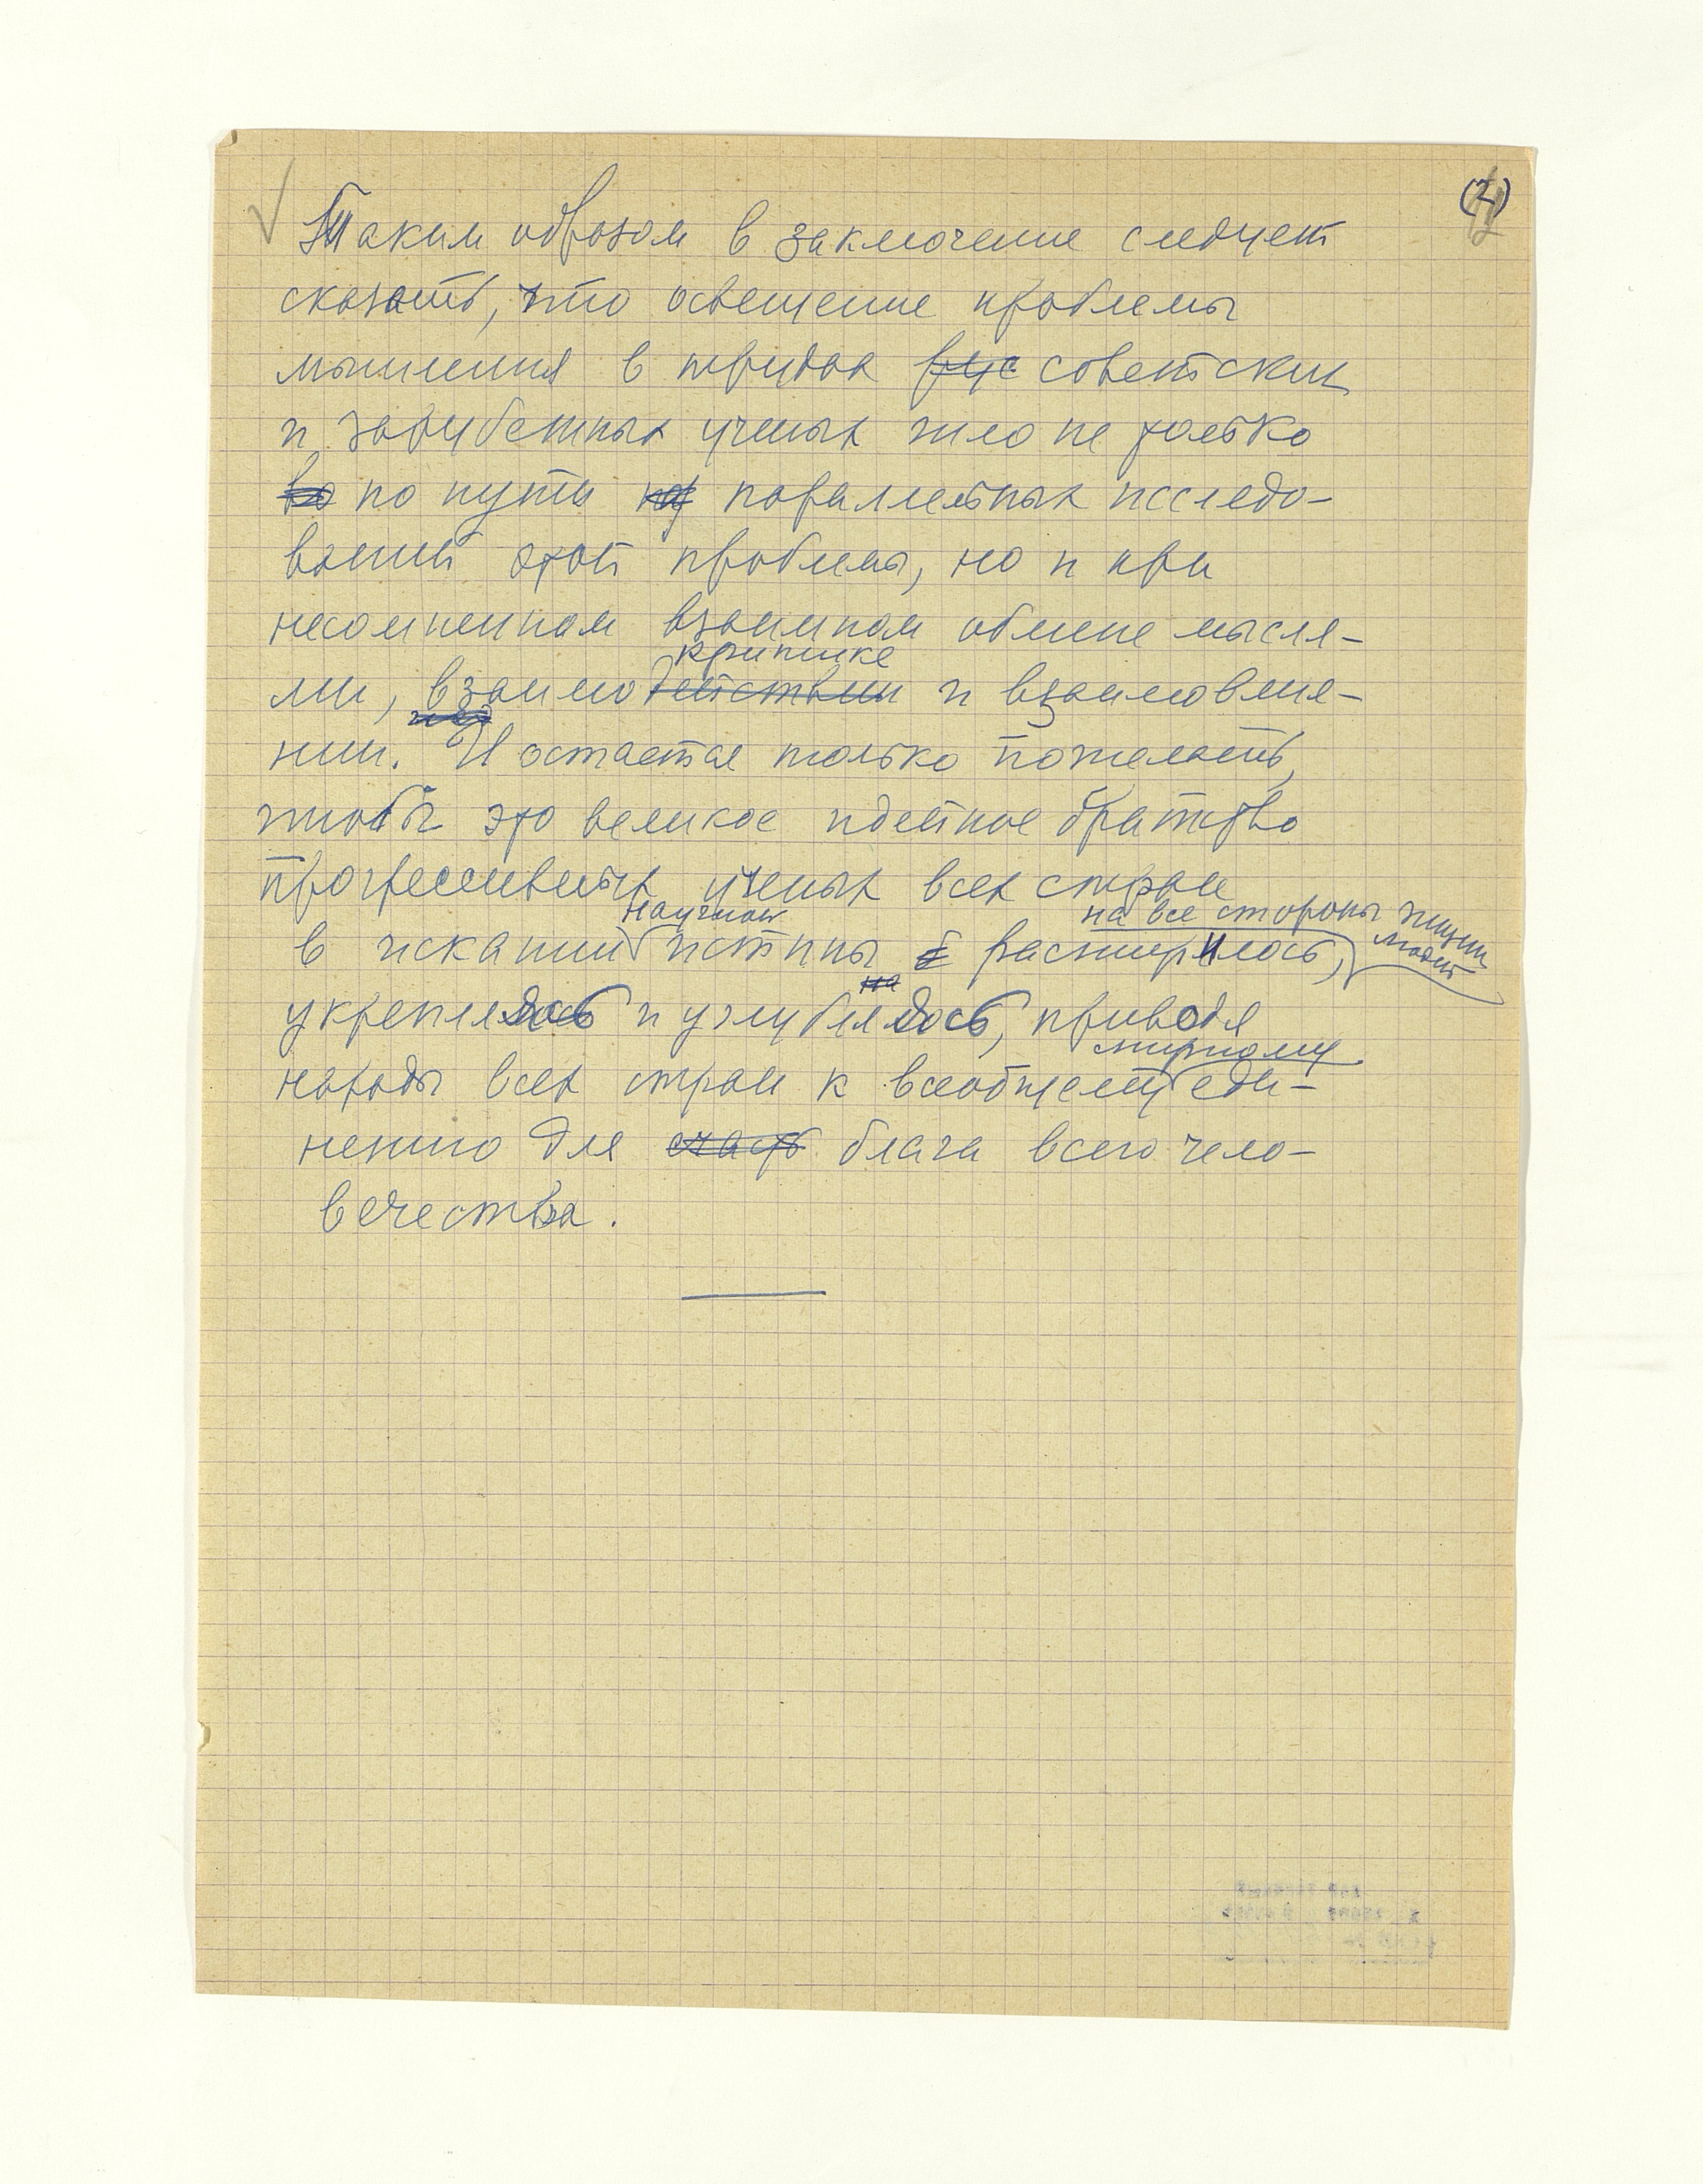 (2)
Таким образом в заключение следует
сказать, что освещение проблемы
мышления в трудах рус советских
и зарубежных ученых шло не только
во по пути параллельных исследо-
ваний этой проблемы, но и при
несомненном взаимном обмене мысля-
критике
ми, взаимодействии и взаимовлия-
нии. И остается только пожелать,
чтобы это великое идейное братство
прогрессивных ученых всех стран
научной на все стороны жизни людей
в искании истины б расширилось,
на
укреплялось и углублялось, приводя
мирному
народы всех стран к всеобщему еди-
нению для счасть блага всего чело-
вечества.